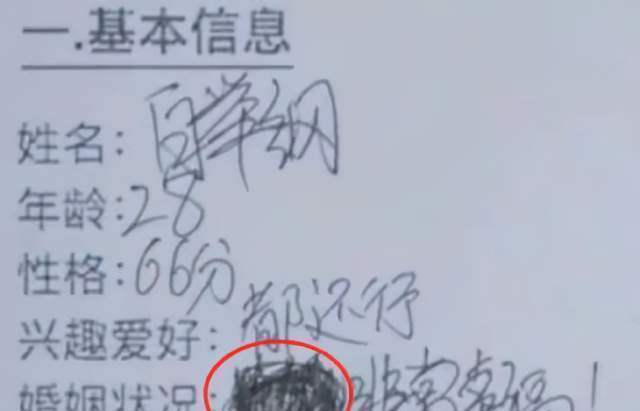 一.基本信息
姓名：白举纲
年龄：28
性格：66分
兴趣爱好：都还行
婚姻状况：非常